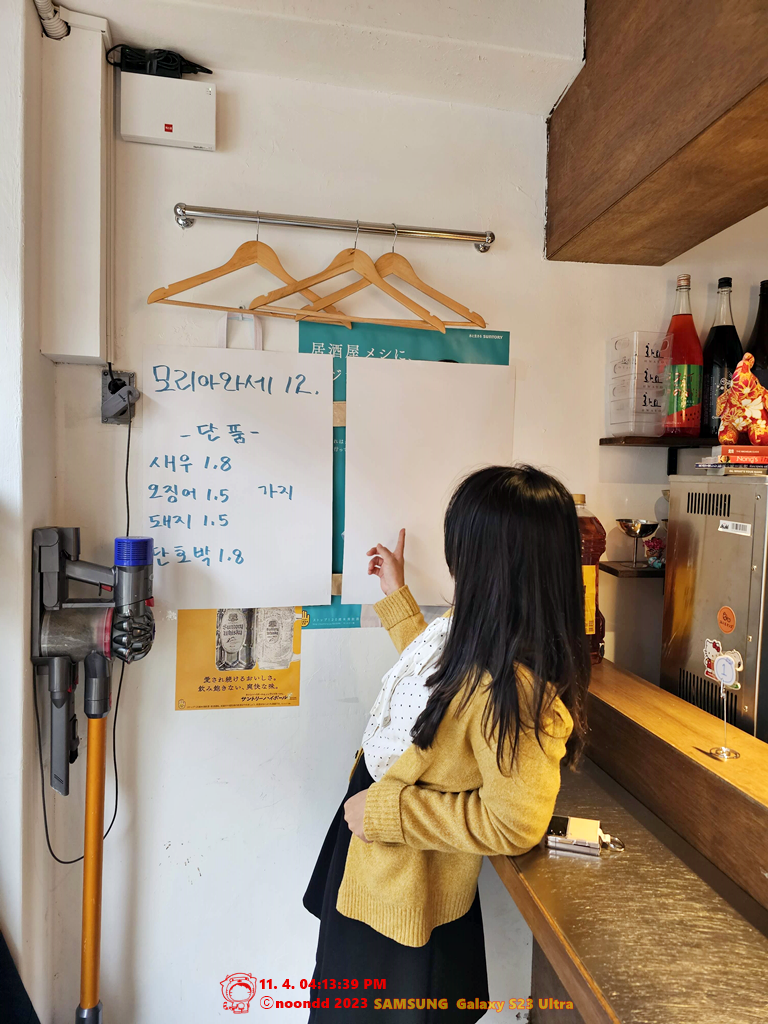 居酒屋メシに、
SUNTORY
모리아와세 12.
-단품-
새우 1.8
오징어 1.5 가지
돼지 1.5
단호박 1.8
Suntory
Whisky
愛され続けるおいしさ。
飲み飽きない、爽快な味。
サントリーハイボール
11. 4. 04:13:39 PM
©noondd 2023 SAMSUNG Galaxy S23 Ultra